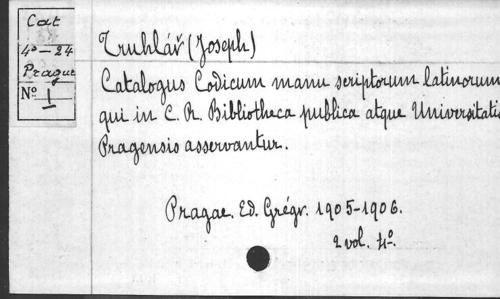 Cat
4º-24
Prague
Nº 1
Truhlář (Joseph)
Catalogus Codicum manu scriptorum latinorum
qui in C. R. Bibliotheca publica atque Universitatis
Pragensis asservantur.
Pragae. Ed. Grégr. 1905-1906.
2 vol. 4º.